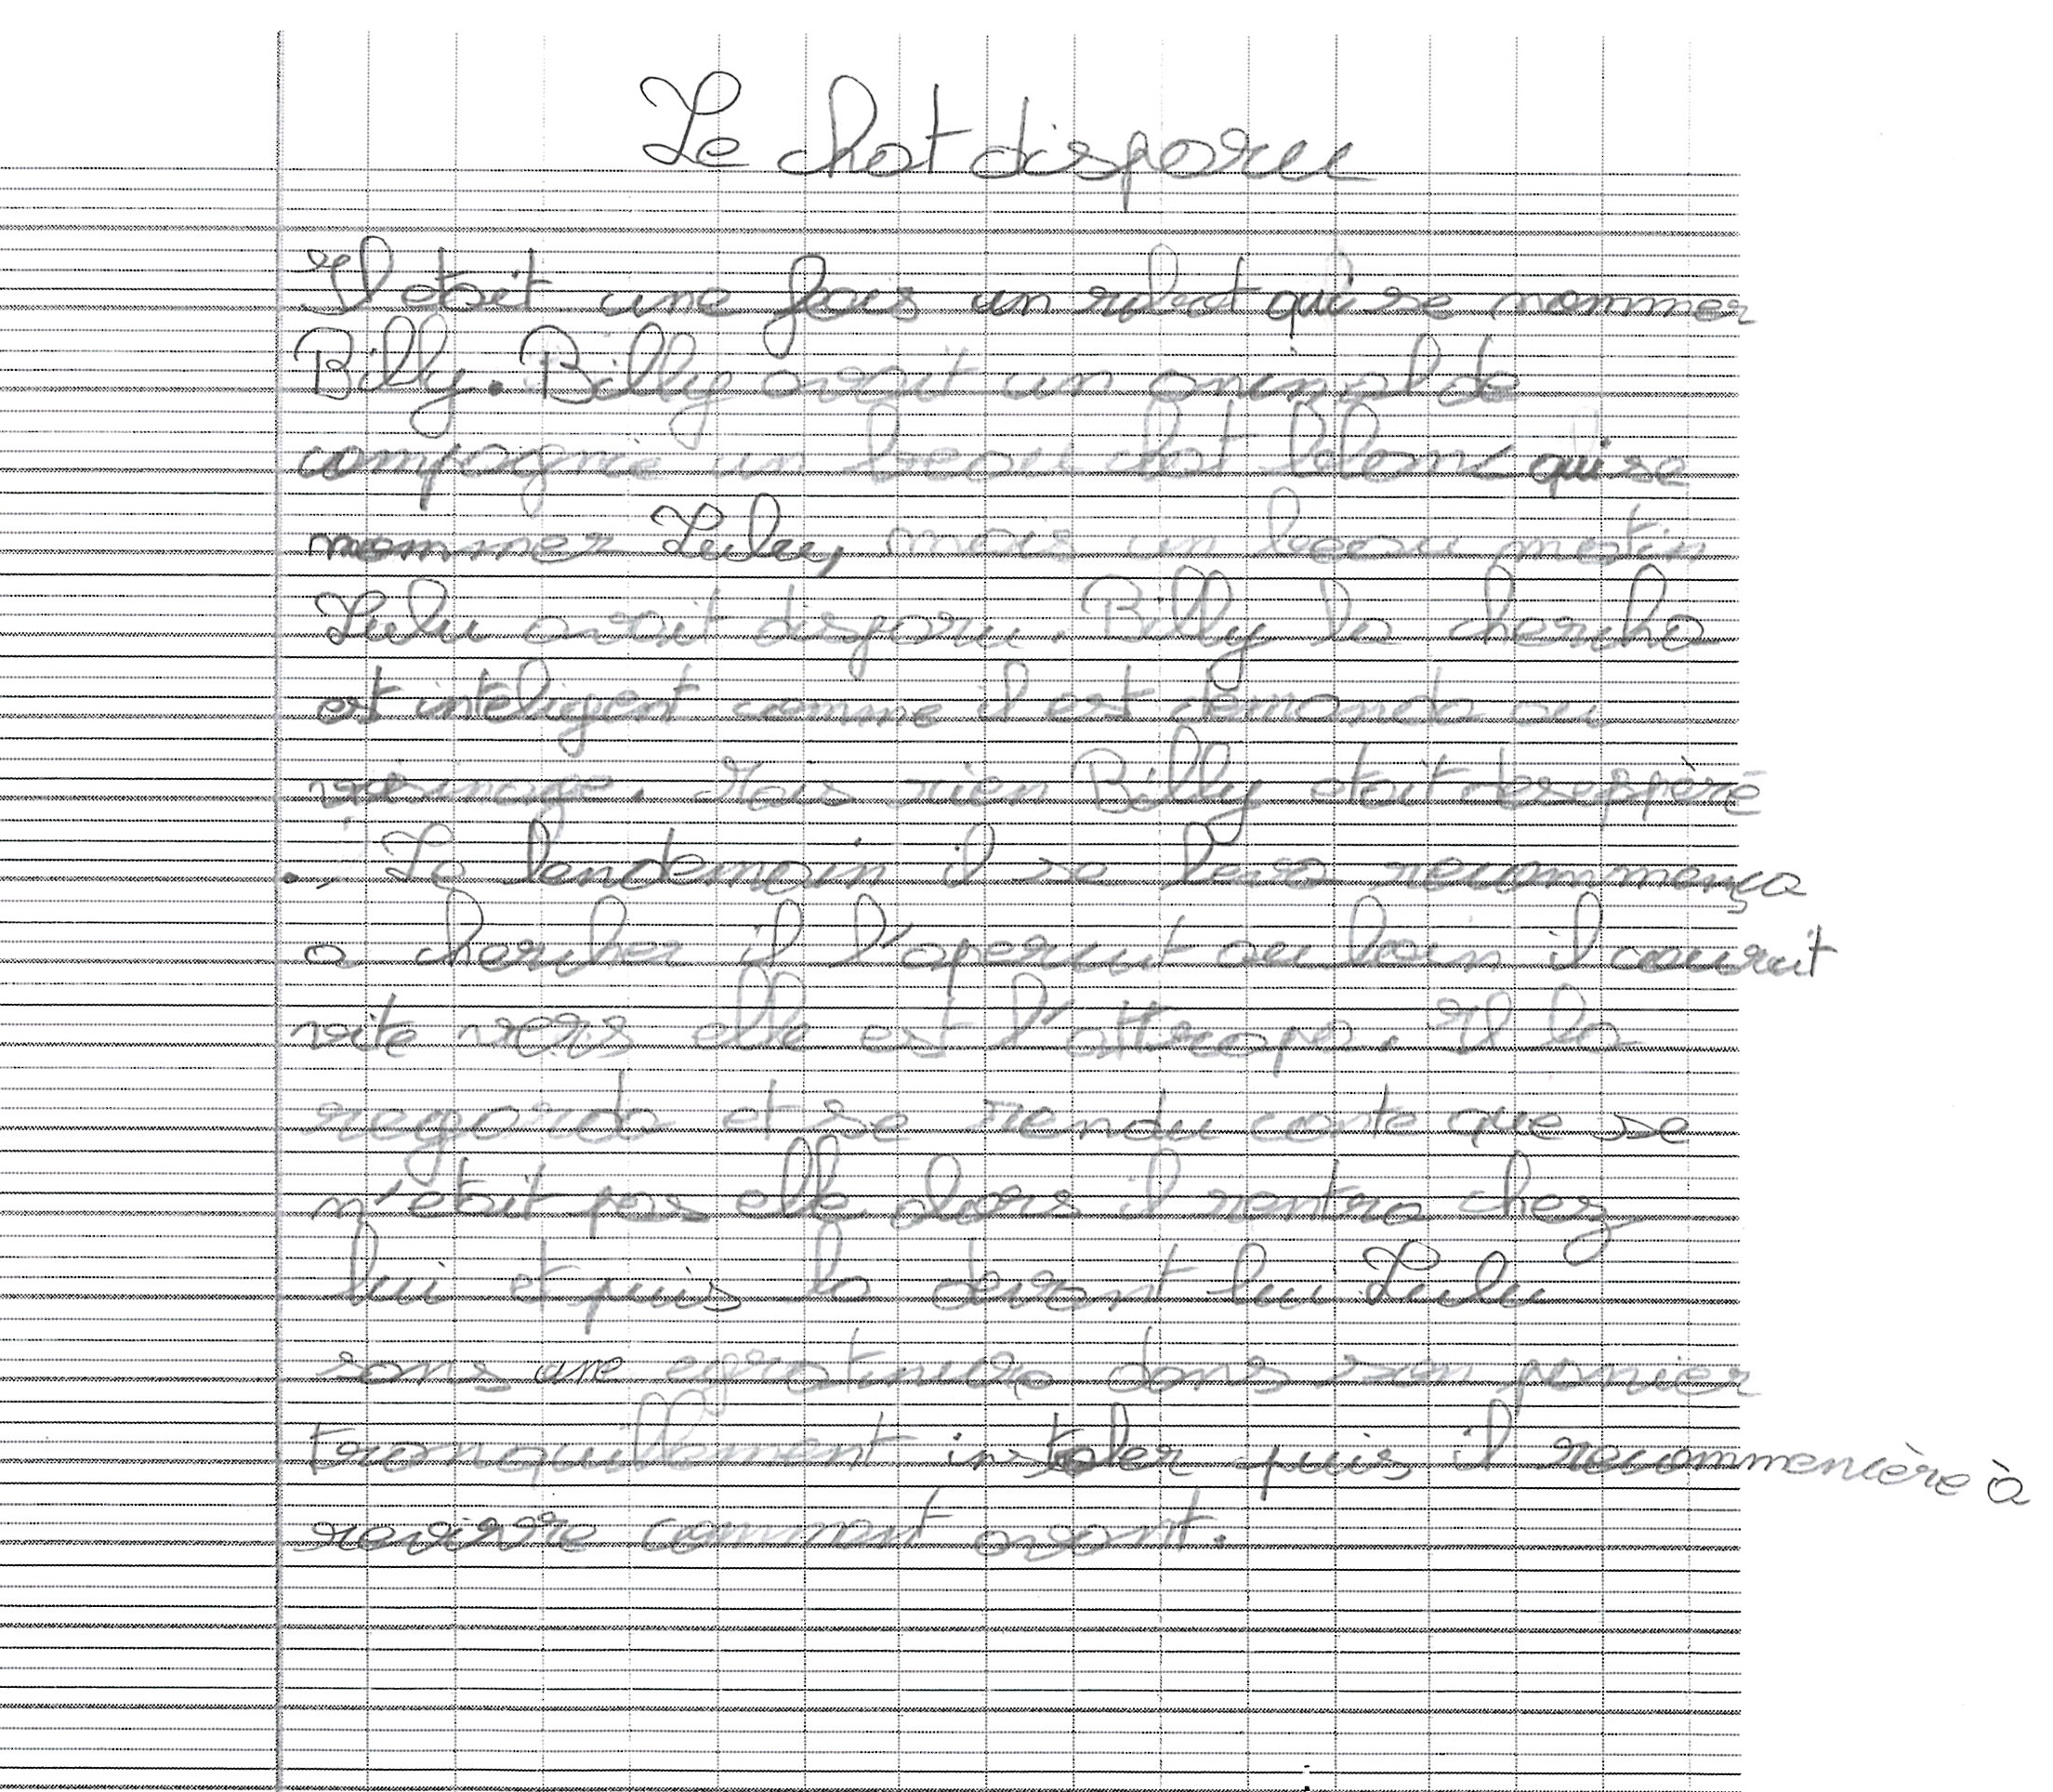 Le chat disparu
Il etait une fois un robot qui se nommer
Billy. Billy avait un animal de
compagnie un beau chat blanc qui se
nommer Lulu, mais un beau matin
Lulu avait disparu. Billy la chercha
est inteligent comme il est demanda au
voisinage. Mais rien Billy etait deseppèré
. Le lendemain il se leva recommença
a chercher il l'aperçut au loin il courut
vite vers elle est l'attrapa. Il la
regarda et se rendu conte que se
n'etait pas elle alors il rentra chez
lui et puis la devant lui Lulu
sans une egratinure dans son panier
tranquillement instaler puis il recommencère à
revivre comment avant.